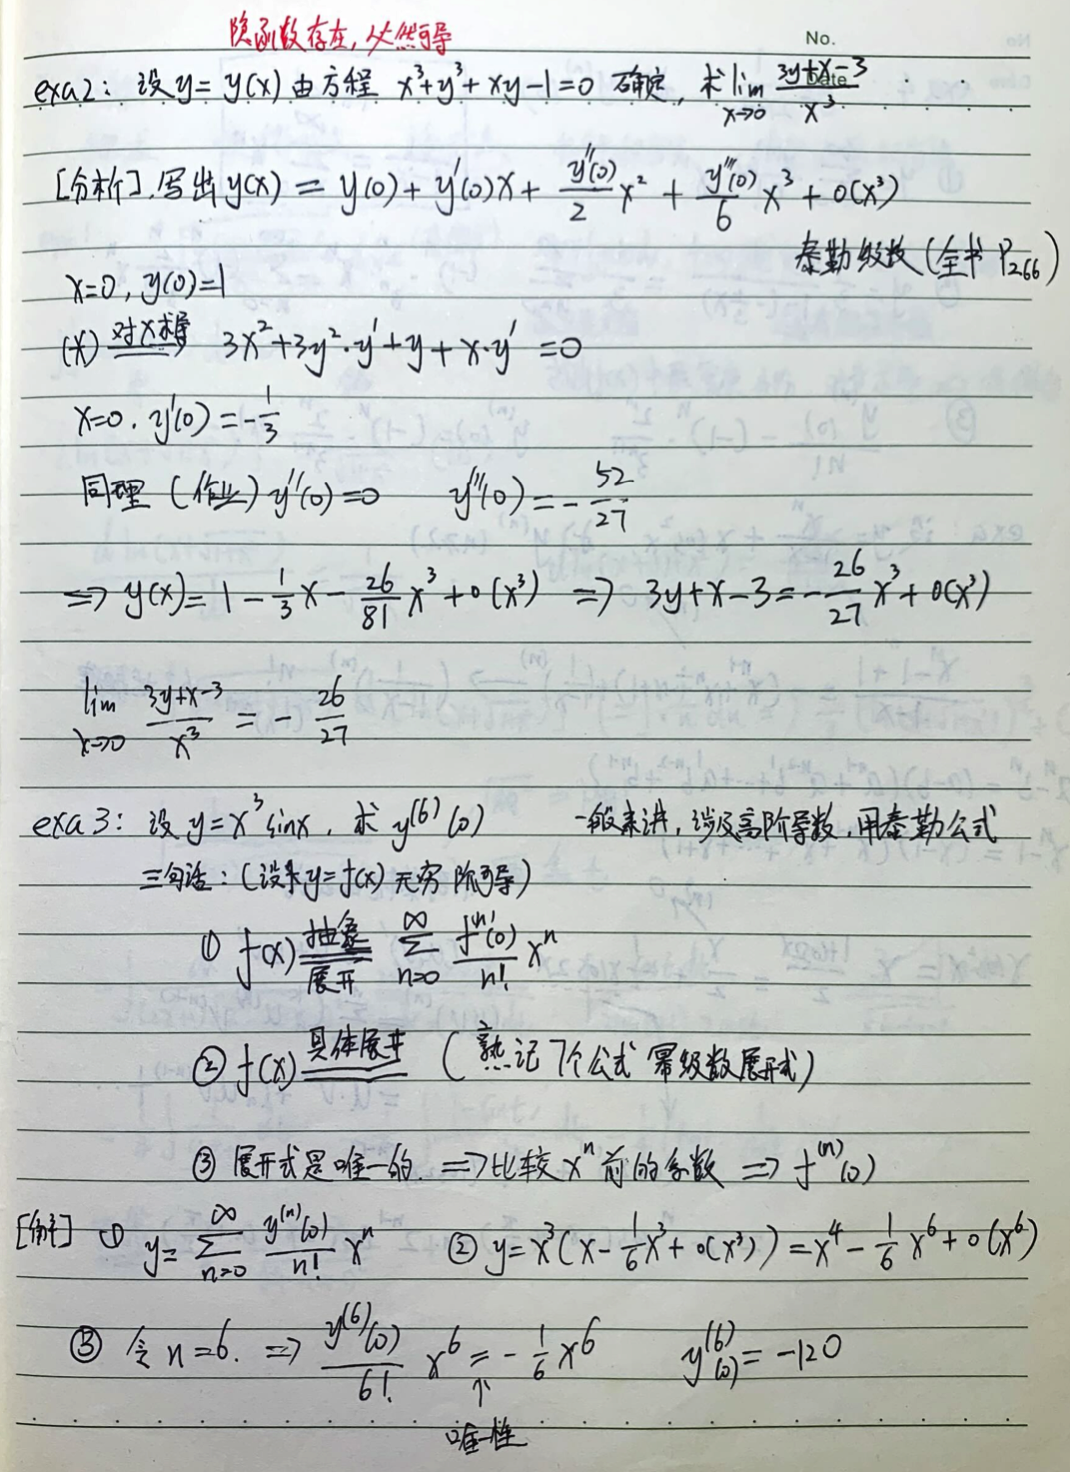 隐函数存在，必然可导
No.
Date
exa2：设y=y(x)由方程 x³+y³+xy-1=0 确定，求 lim_{x→0} (3y+x-3)/x³
[分析].写出y(x) = y(0)+y'(0)x+ y''(0)/2 x² + y'''(0)/6 x³ + o(x³)
泰勒级数(全书 P₂₆₆)
x=0, y(0)=1
(*) 对x求导 3x²+3y²·y'+y+x·y' =0
x=0. y'(0) = -1/3
同理 (作业) y''(0)=0 y'''(0) = -52/27
=> y(x)=1-1/3x-26/81x³+o(x³) => 3y+x-3=-26/27x³+o(x³)
lim_{x→0} (3y+x-3)/x³ = - 26/27
exa3：设 y=x³sinx，求 y⁽⁶⁾(0) 一般来讲，涉及高阶导数，用泰勒公式
三句话：(设y=f(x)无穷阶可导)
① f(x) 抽象展开 ∑_{n=0}^{∞} f⁽ⁿ⁾(0)/n! xⁿ
② f(x) 具体展开 (熟记7个公式 幂级数展开式)
③ 展开式是唯一的 => 比较xⁿ前的系数 => f⁽ⁿ⁾(0)
[解] ① y=∑_{n=0}^{∞} y⁽ⁿ⁾(0)/n! xⁿ ② y=x³(x-1/6x³+o(x³))=x⁴-1/6x⁶+o(x⁶)
③ 令n=6. => y⁽⁶⁾(0)/6! x⁶ = -1/6x⁶ y⁽⁶⁾(0)= -120
↑
唯一性